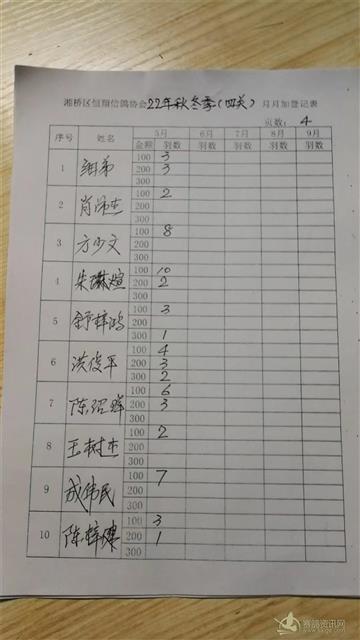 湘桥区恒翔信鸽协会22年秋冬季(四关)月月加登记表
页数: 4
序号 姓名 5月 6月 7月 8月 9月
金额 羽数 羽数 羽数 羽数 羽数
1 细弟 100 3
200 3
300
2 100 2
200
300
3 方少文 100 8
200
300
4 朱琳煊 100 10
200 2
300
5 舒梓鸿 100 3
200
300 1
6 洪俊平 100 4
200 3
300 2
7 陈绍辉 100 6
200 3
300
8 王树杰 100 2
200
300
9 成伟民 100 7
200
300
10 陈梓健 100 3
200 1
300
赛鸽资讯网